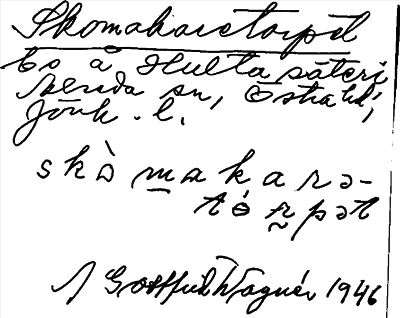 Skomakaretorpet
to å Hulta säteri
Svenda sn, Östra hd,
Jönk. l.
skò makarə-
tórpət
Gottfrid Wagnér 1946